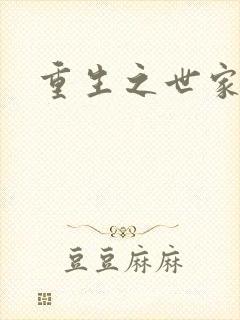 重生之世家
豆豆麻麻